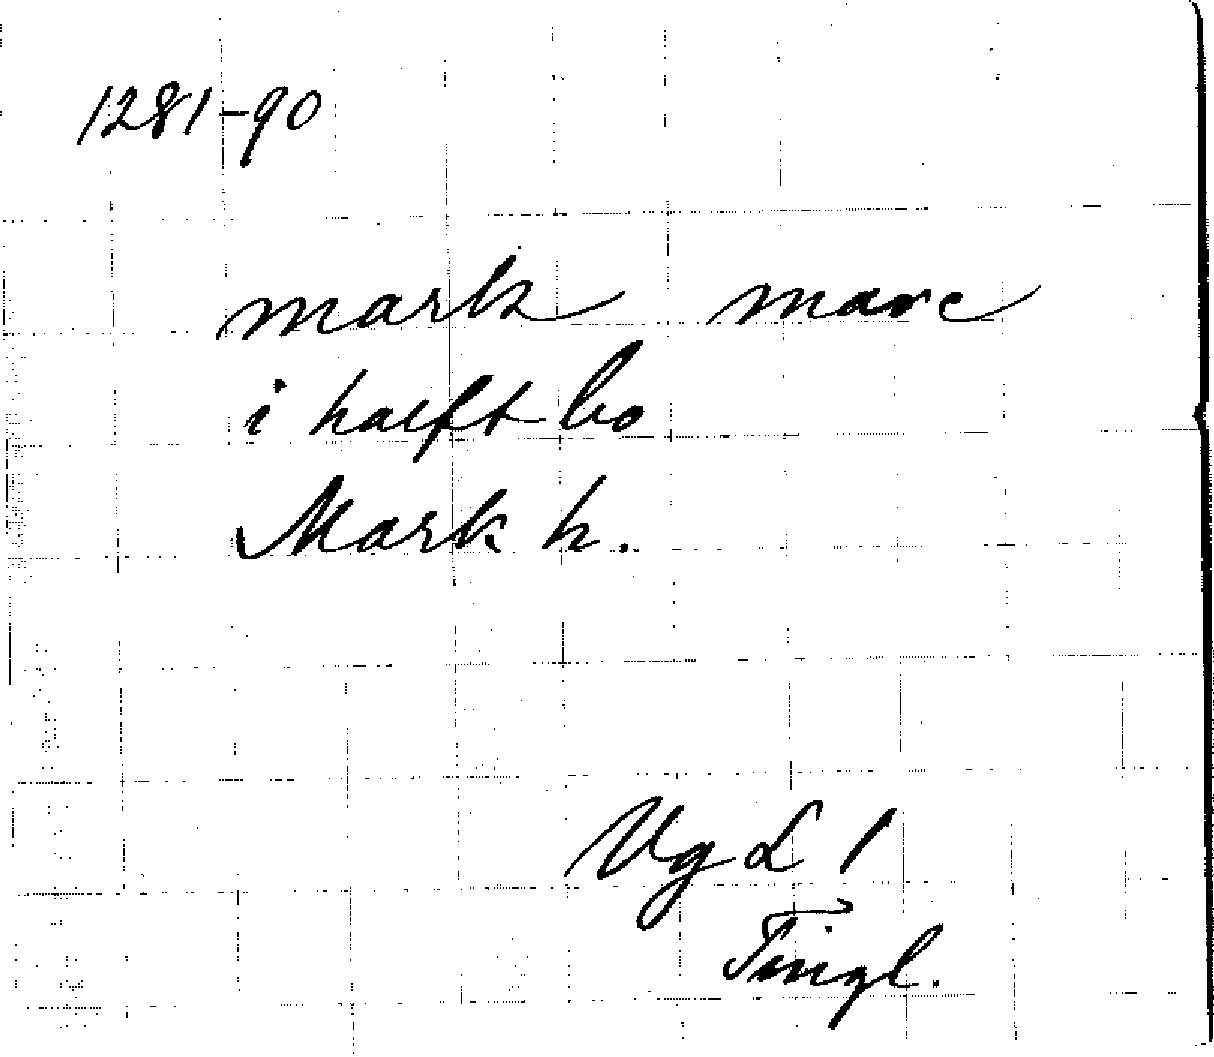 1281-90
mark marc
i haift bo
Mark h.
Vg L 1
Tingl.